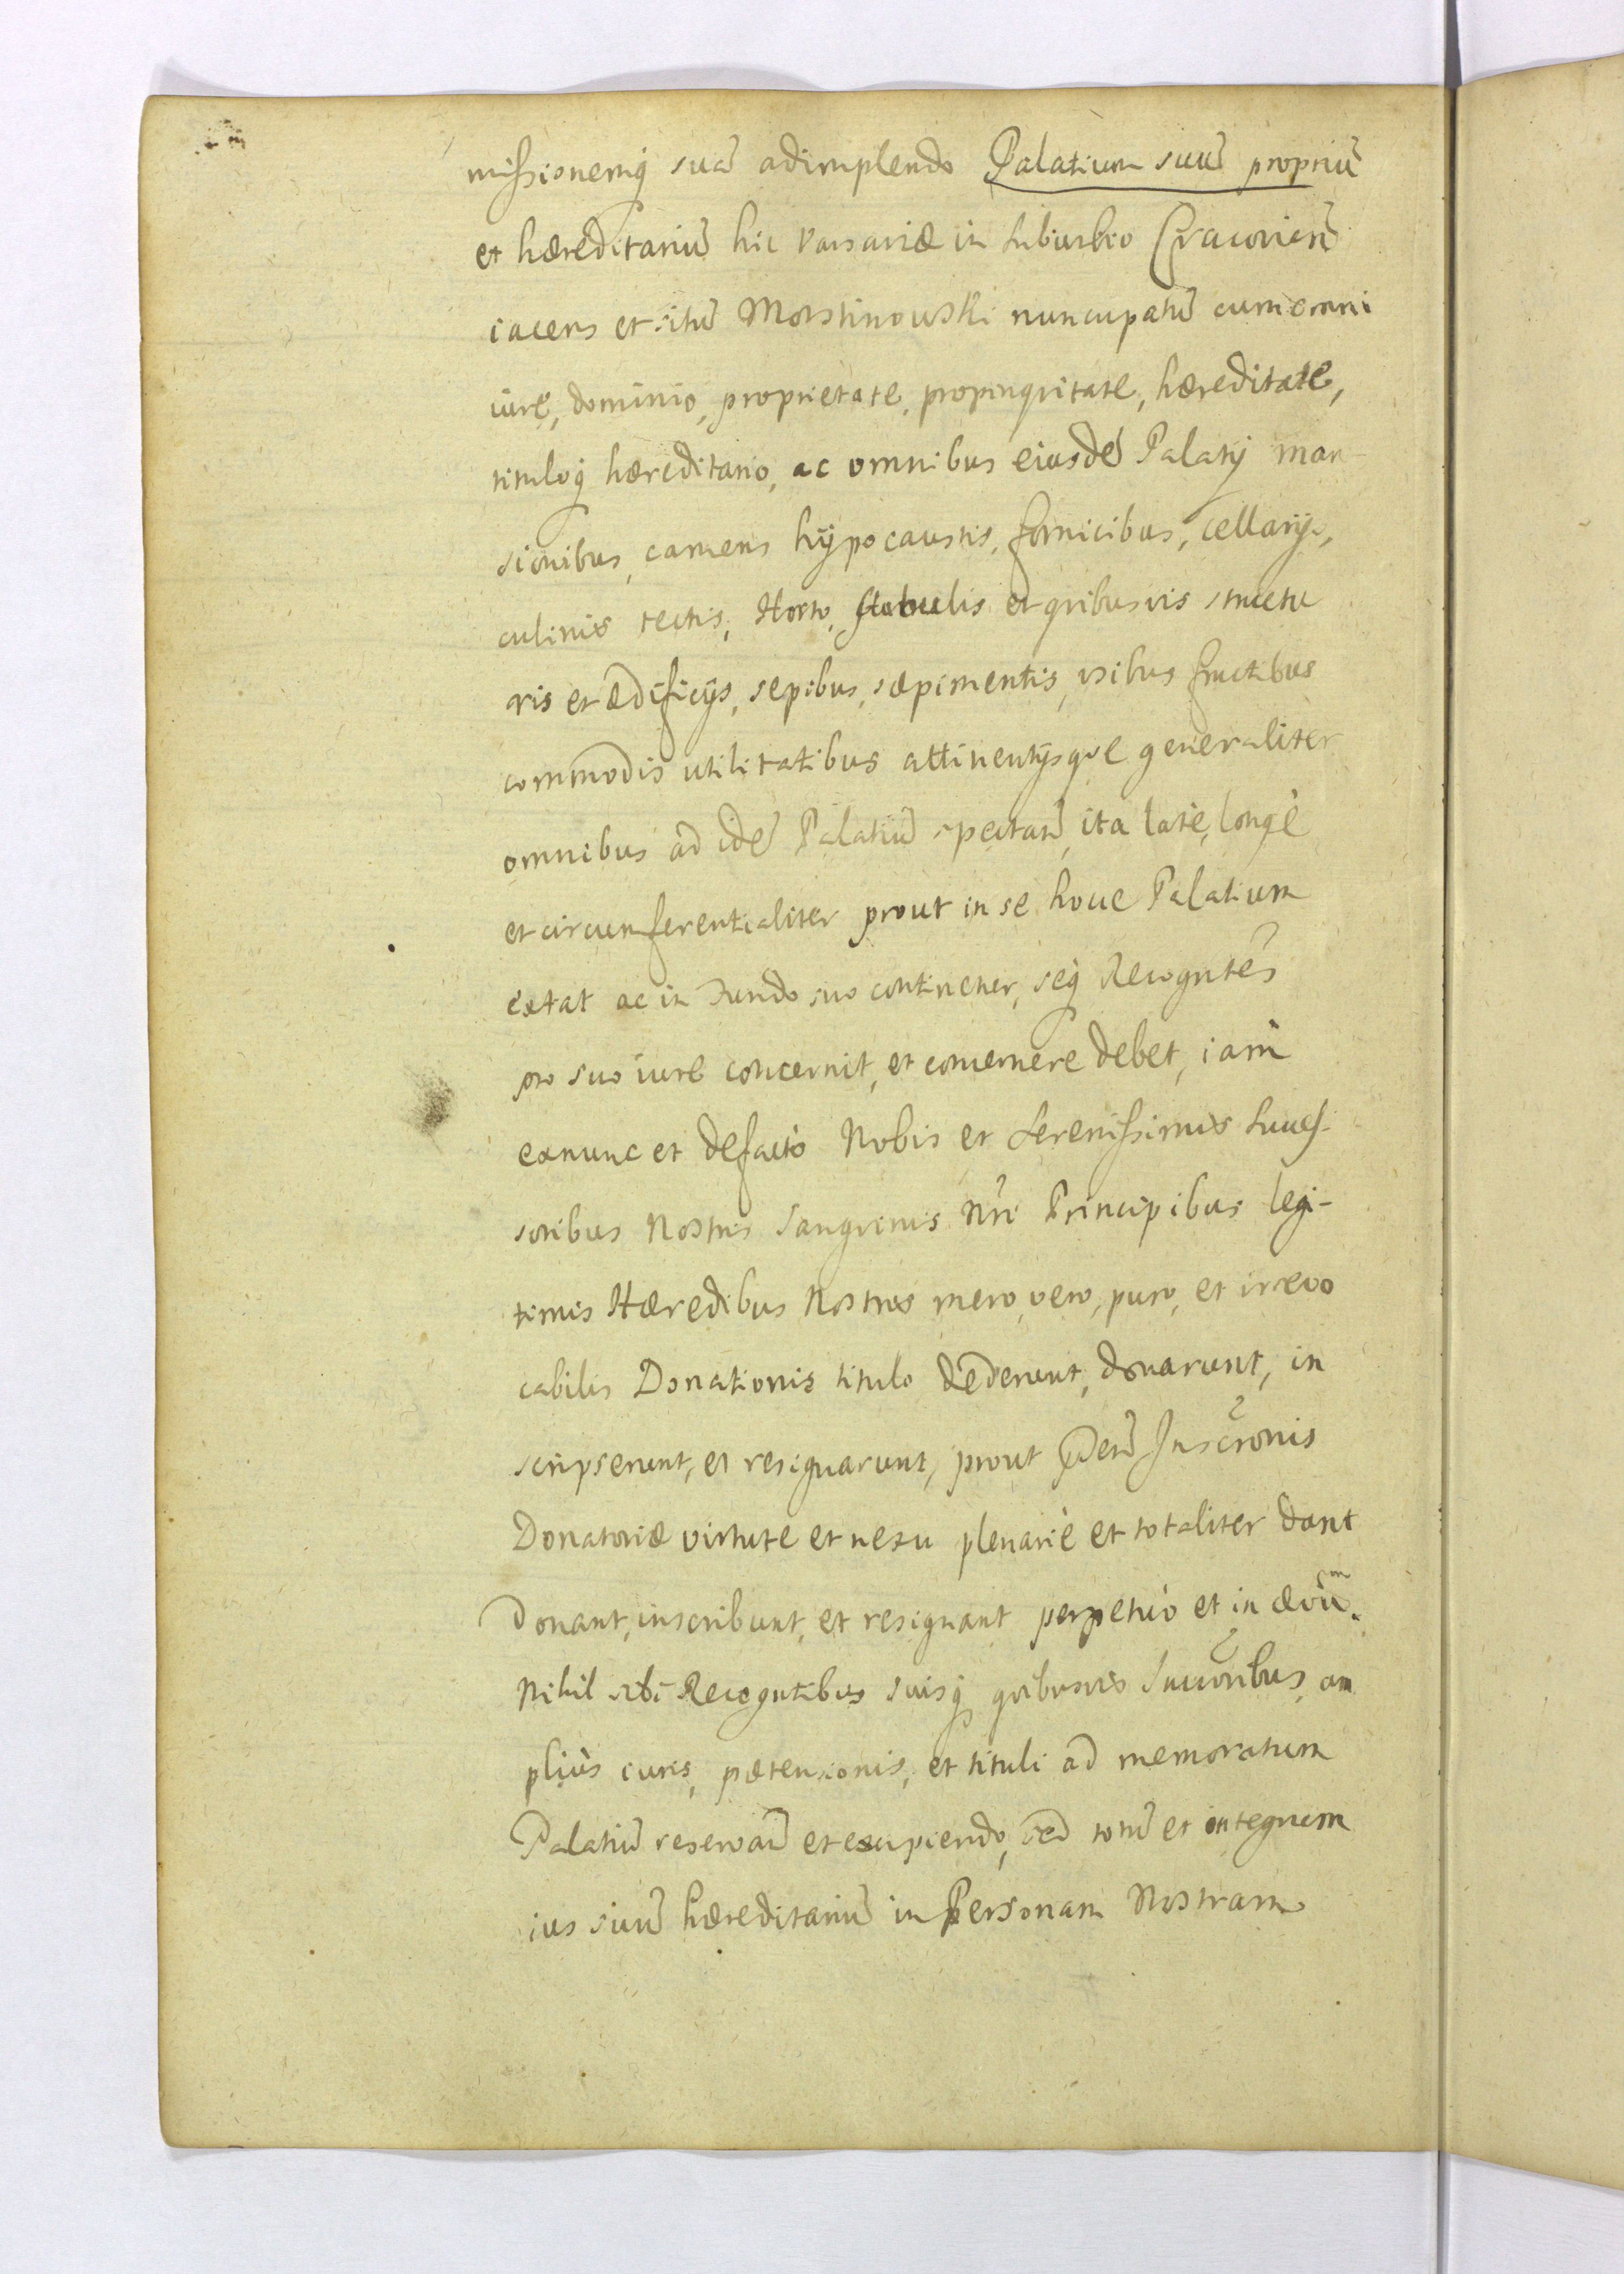 missionemq̃ suã adimplendo Palatium suũ propriũ
et hæreditariũ hic Varsaviæ in suburbio Cracovieñ
iacens et situ᷉ Morstinowski nuncupatũ cum omni
iure, dominio, proprietate, propinqvitate, hæreditate,
tituloq̃ hæreditario, ac omnibus eiusdẽ Palatij man-
sionibus, cameris hÿpocaustis, fornicibus, cellarijs,
culinis tectis, Horto, stabulis et qvibusvis structu
ris et ædificijs, sepibus, sæpimentis, usibus fructibus
commodis utilitatibus attinentijsqve generaliter
omnibus ad idẽ Palatiũ spectañ, ita latè, longè
et circumferentialiter prout in se hocce Palatium
extat ac in Fundo suo continetur, seq̃ Recogñtẽs
pro suo iure concernit, et concernere debet, iam
exnunc et defacto Nobis et Serenissimis Succes-
soribus Nostris Sangvinis Nr̃i Principibus legi-
timis Hæredibus Nostris mero, vero, puro, et irrevo
cabilis Donationis titulo dederunt, donarunt, in
scripserunt, et resignarunt, prout p̃deñ Inscr̃onis
Donatoriæ virtute et nexu plenariè et totaliter dant
donant, inscribunt, et resignant perpetuò et in ævũm.
Nihil sibi Recogñtibus suisq̃ qvibusvis Succõribus, am
pliùs iuris, prætensionis, et tituli ad memoratum
Palatiũ reservañ et excipiendo, sed totũ et integrum
ius suũ hæreditariũ in Personam Nostram